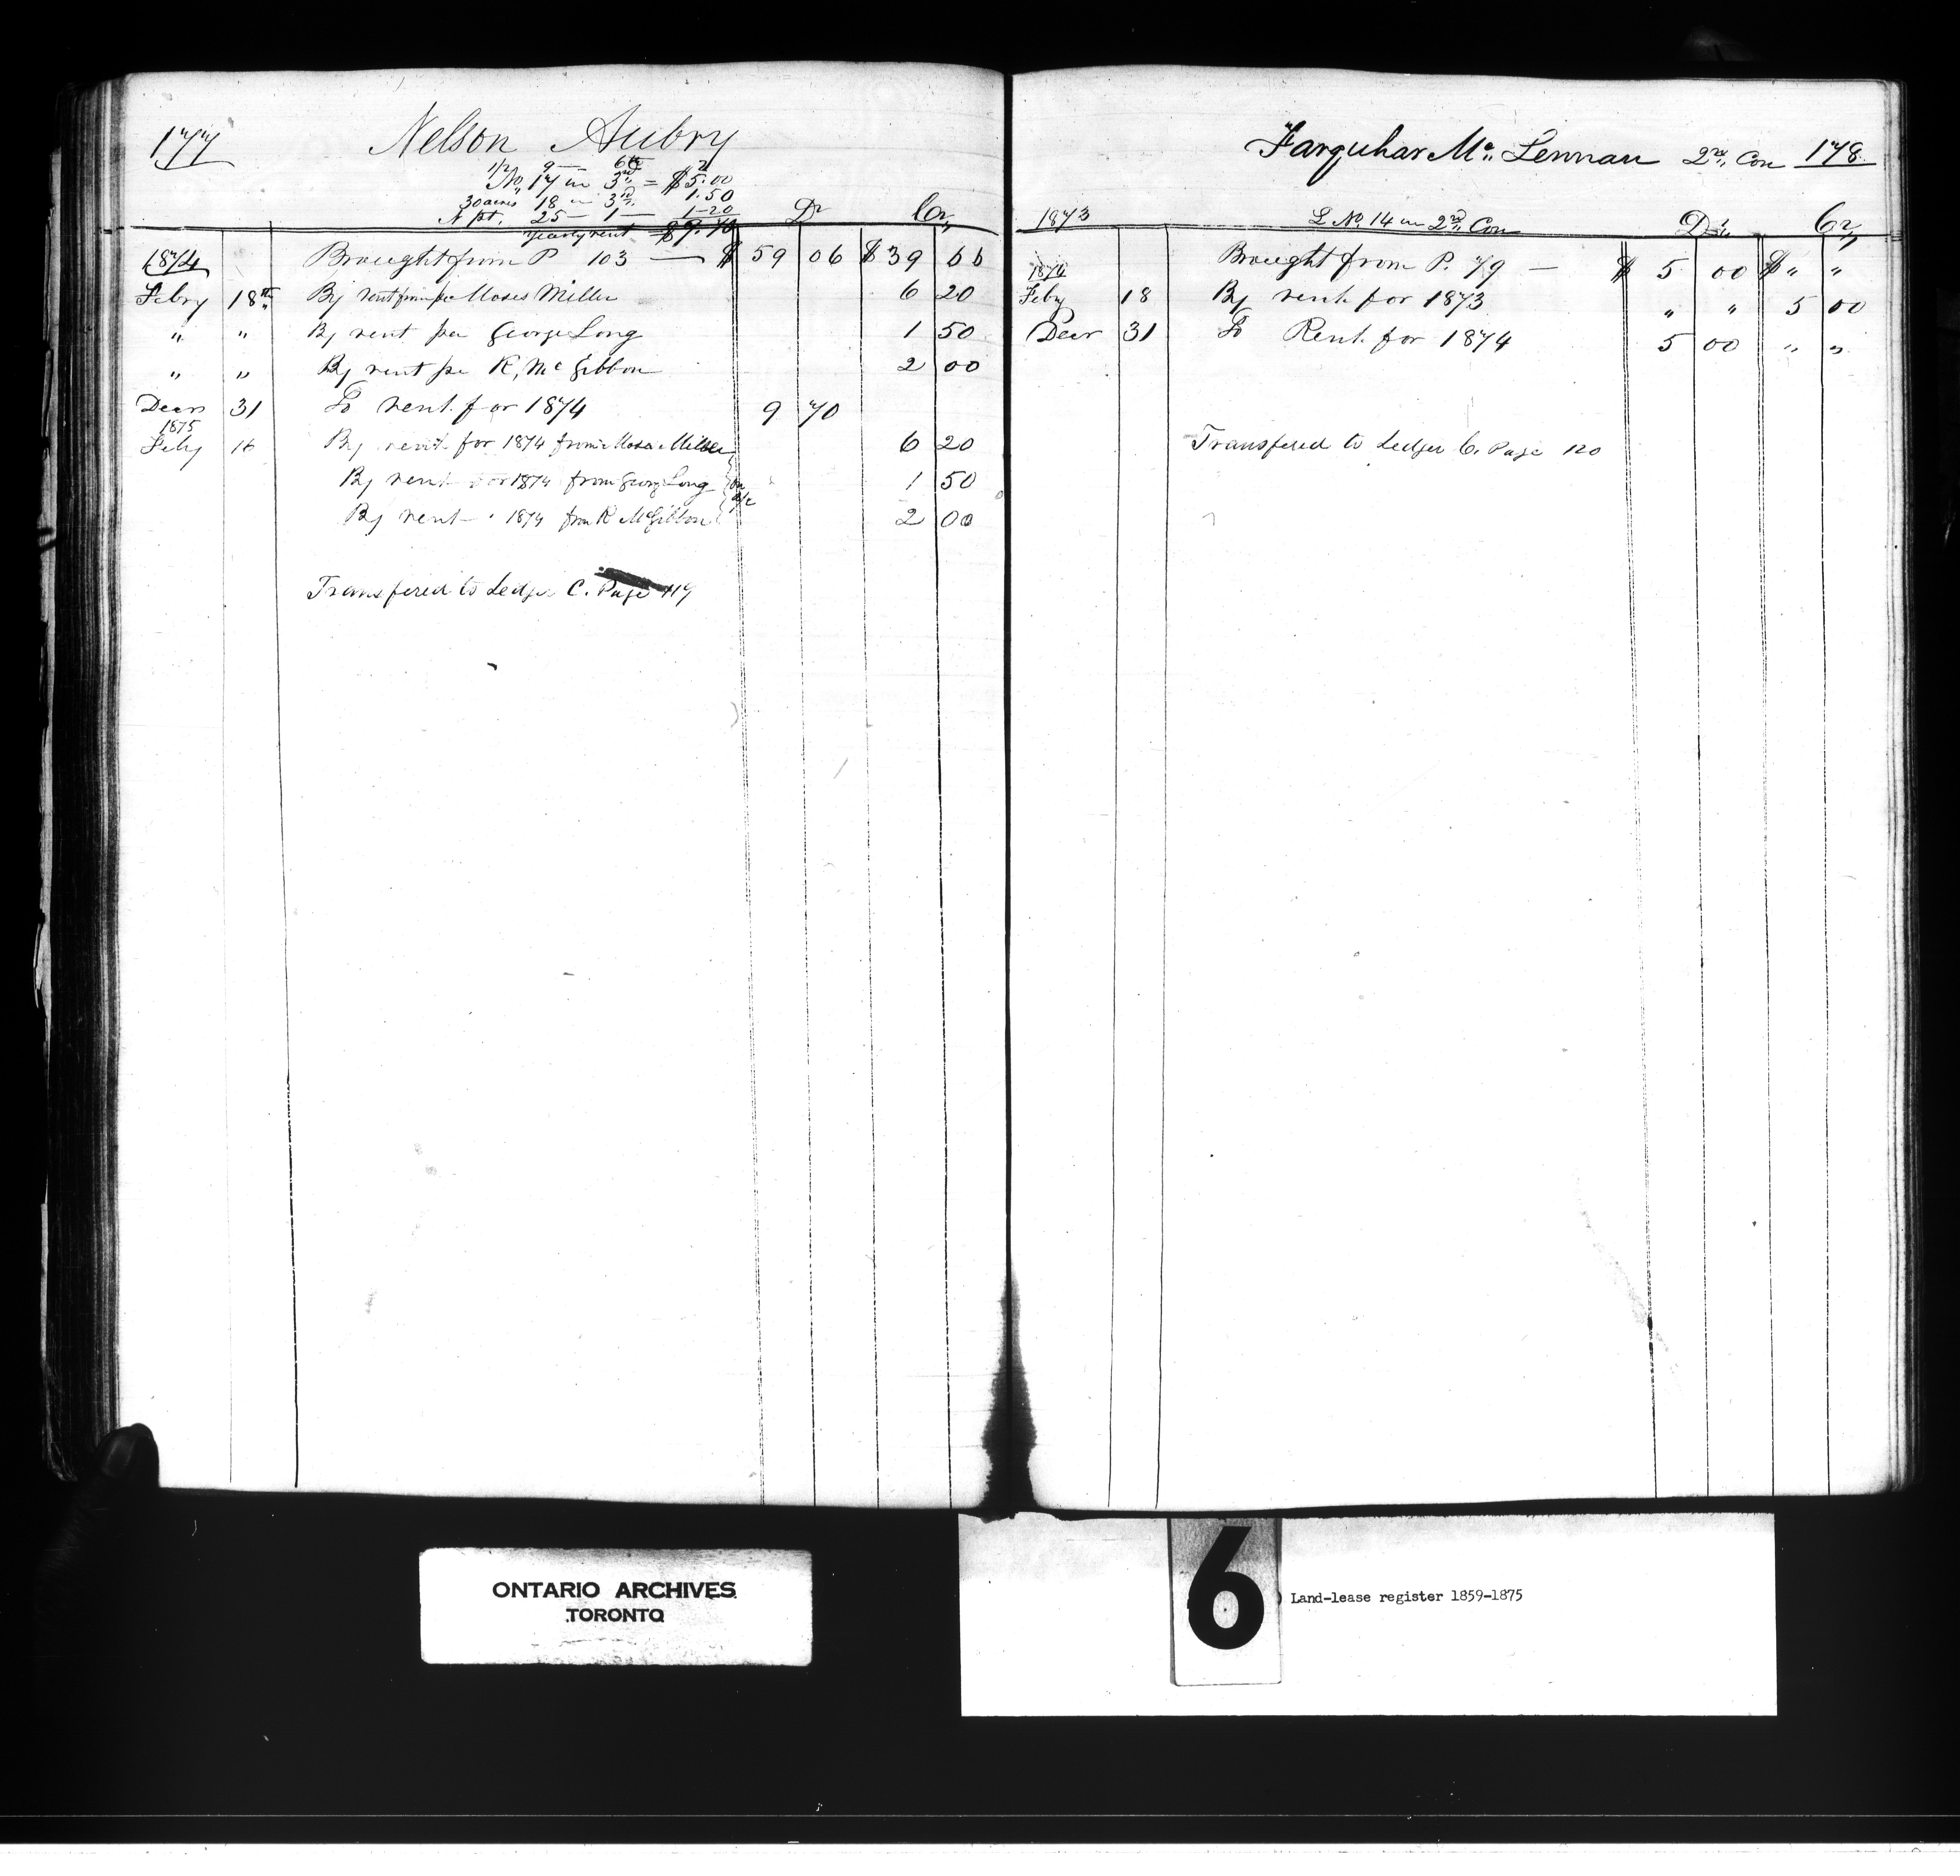 177
Nelson Aubry
1/2 9 — 6th 2
No 17 in 3rd = $5.00
30 acres 18 — 3rd 1.50
N pt. 25 — 1 — 1-20
Yearly rent = $9.70
Dr Cr
1874 Brought from P 103 — $ 59 06 $ 39 66
Feby 18th By rent from per Moses Miller 6 20
" " By rent per George Long 1 50
" " By rent per R, Mc Gibbon 2 00
Decr 31 To rent for 1874 9 70
1875
Feby 16 By rent for 1874 from Moses Miller 6 20
By rent for 1874 from George Long 1 50
on a/c
By rent " 1874 from R McGibbon 2 00
Transfered to Ledger C. Page 119
Farquhar Mc Lennan 2nd Con 178
1873 L No 14 in 2nd Con Dr Cr
Brought from P. 79 — $ 5 00 $ " "
1874
Feby 18 By rent for 1873 " " 5 00
Decr 31 To Rent for 1874 5 00 " "
Transfered to Ledger C. Page 120
ONTARIO ARCHIVES
TORONTO
6
Land-lease register 1859-1875